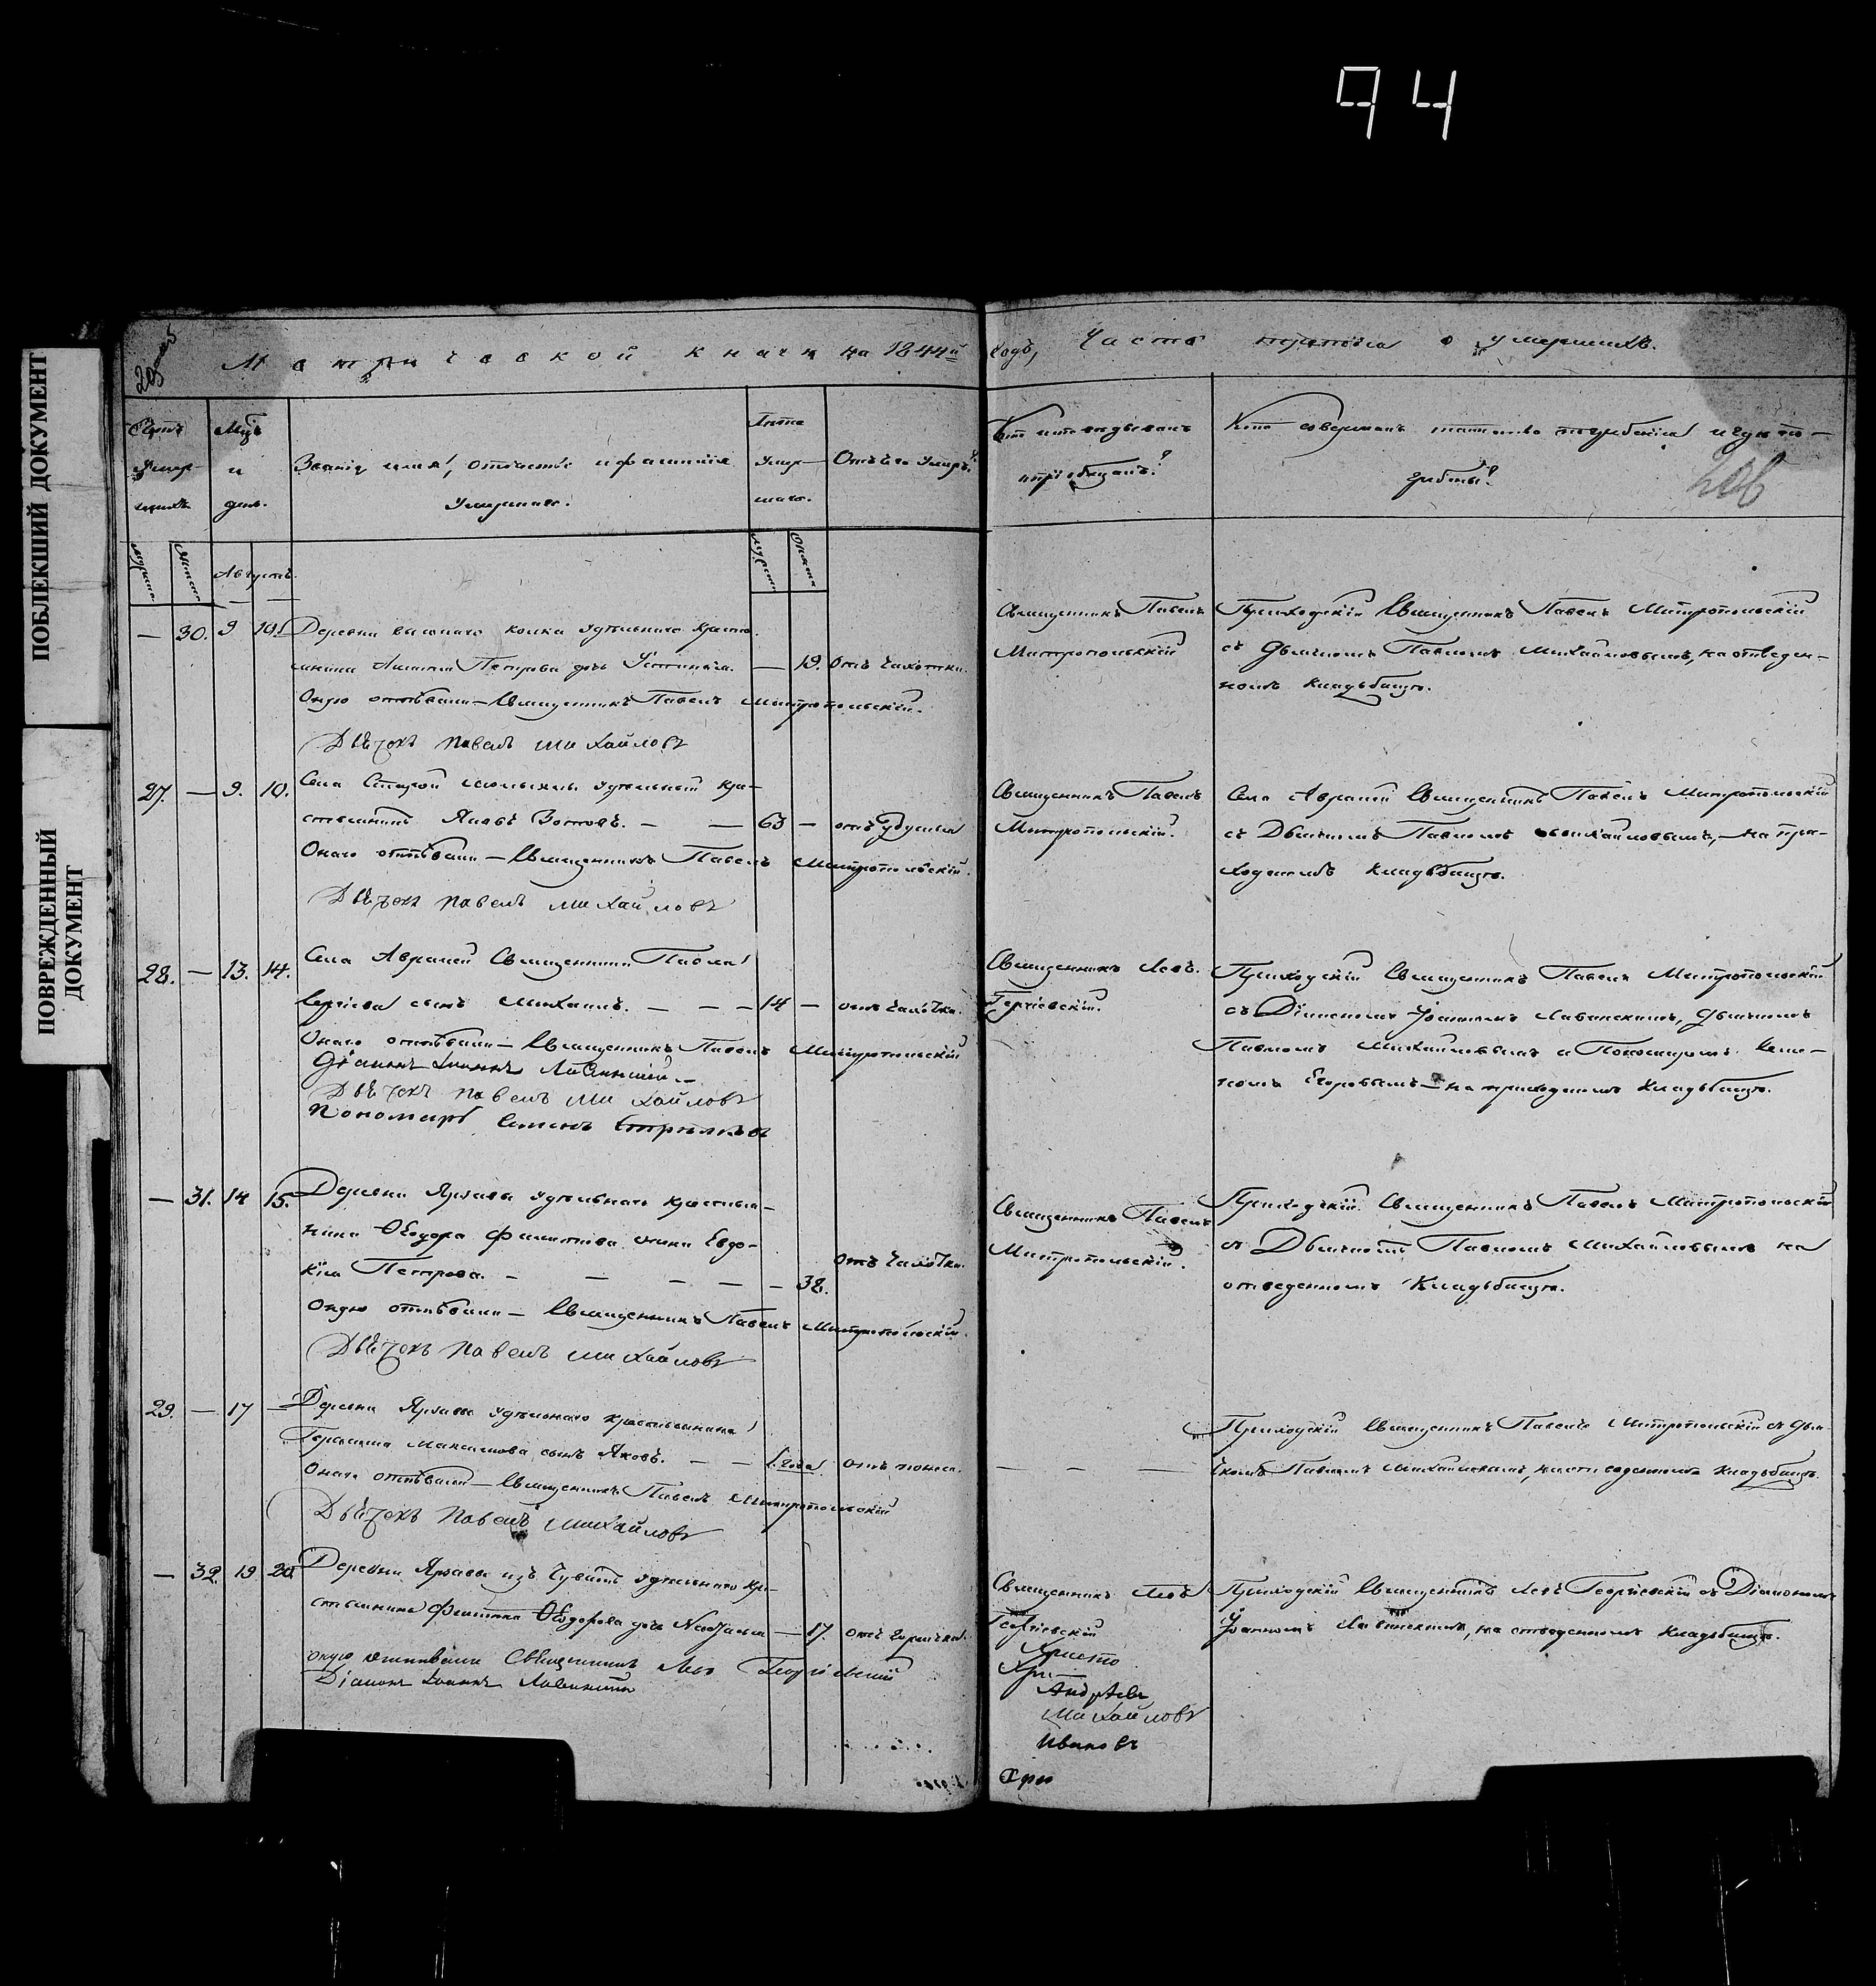 94
ПОБЛЕКШИЙ ДОКУМЕНТ
ПОВРЕЖДЕННЫЙ
ДОКУМЕНТ
Метрической книги на 1844й
годъ, Часть третія о умершихъ.
Счетъ
умер-
шихъ
Мцъ
и
день.
Званіе имя, отчество и фамилія
умершаго.
Лѣта
умер-
шаго.
Отъ чего умеръ?
Кто исповѣдывалъ
и пріобщалъ?
Кто совершалъ таинство погребенія и гдѣ по-
гребены?
Августъ.
— 30. 9 10. Деревни удѣльнаго кресть-
янина Петрова дочь Устинья. — 19. Отъ чахотки.
Оную отпѣвали — Священникъ Павелъ Митропольскій.
Дьячекъ Павелъ Михайловъ
Священникъ Павелъ
Митропольскій
Приходскій Священникъ Павелъ Митропольскій
съ Дьячкомъ Павломъ Михайловымъ, на отведен-
номъ кладбищѣ.
27. — 9. 10. Села Старой удѣльный кре-
стьянинъ Яковъ Зотовъ. — — 63 — отъ удушья
Онаго отпѣвали — Священникъ Павелъ Митропольскій.
Дьячекъ Павелъ Михайловъ
Священникъ Павелъ
Митропольскій.
Села Авралей Священникъ Павелъ Митропольскій
съ Дьячкомъ Павломъ Михайловымъ, — на при-
ходскомъ кладбищѣ.
28. — 13. 14. Села Авралей Священника Павла
Сергіева сынъ Михаилъ. — — — 14 — отъ чахотки.
Онаго отпѣвали — Священникъ Павелъ Митропольскій
Діаконъ Іоаннъ
Дьячекъ Павелъ Михайловъ
Пономарь Семенъ
Священникъ Левъ
Георгіевскій.
Приходскій Священникъ Павелъ Митропольскій
съ Діакономъ Іоанномъ Дьячкомъ
Павломъ Михайловымъ и Пономаремъ Семе-
номъ Егоровымъ — на приходскомъ кладбищѣ.
— 31. 14 15. Деревни удѣльнаго крестья-
нина Ѳеодора Филиппова жена Евдо-
кія Петрова. — — — — — 38. Отъ чахотки.
Оную отпѣвали — Священникъ Павелъ Митропольскій.
Дьячекъ Павелъ Михайловъ
Священникъ Павелъ
Митропольскій.
Приходскій Священникъ Павелъ Митропольскій
съ Дьячкомъ Павломъ Михайловымъ на
отведенномъ кладбищѣ.
29. — 17 — Деревни удѣльнаго крестьянина
Максимова сынъ Яковъ. — — 1. года. отъ поноса.
Онаго отпѣвали — Священникъ Павелъ Митропольскій
Дьячекъ Павелъ Михайловъ
— — —
Приходскій Священникъ Павелъ Митропольскій съ Дья-
чкомъ Павломъ Михайловымъ, на отведенномъ кладбищѣ.
— 32. 19. 20 Деревни изъ Чувашъ удѣльнаго кре-
стьянина Филиппа Ѳеодорова дочь Наталья — 17. отъ горячки.
оную отпѣвали Священникъ Левъ Георгіевскій
Діаконъ Іоаннъ
Священникъ Левъ
Георгіевскій
Христо
Хри
Андрѣевъ
Михайловъ
Ивановъ
Хри
Приходскій Священникъ Левъ Георгіевскій съ Діакономъ
Іоанномъ на отведенномъ кладбищѣ.